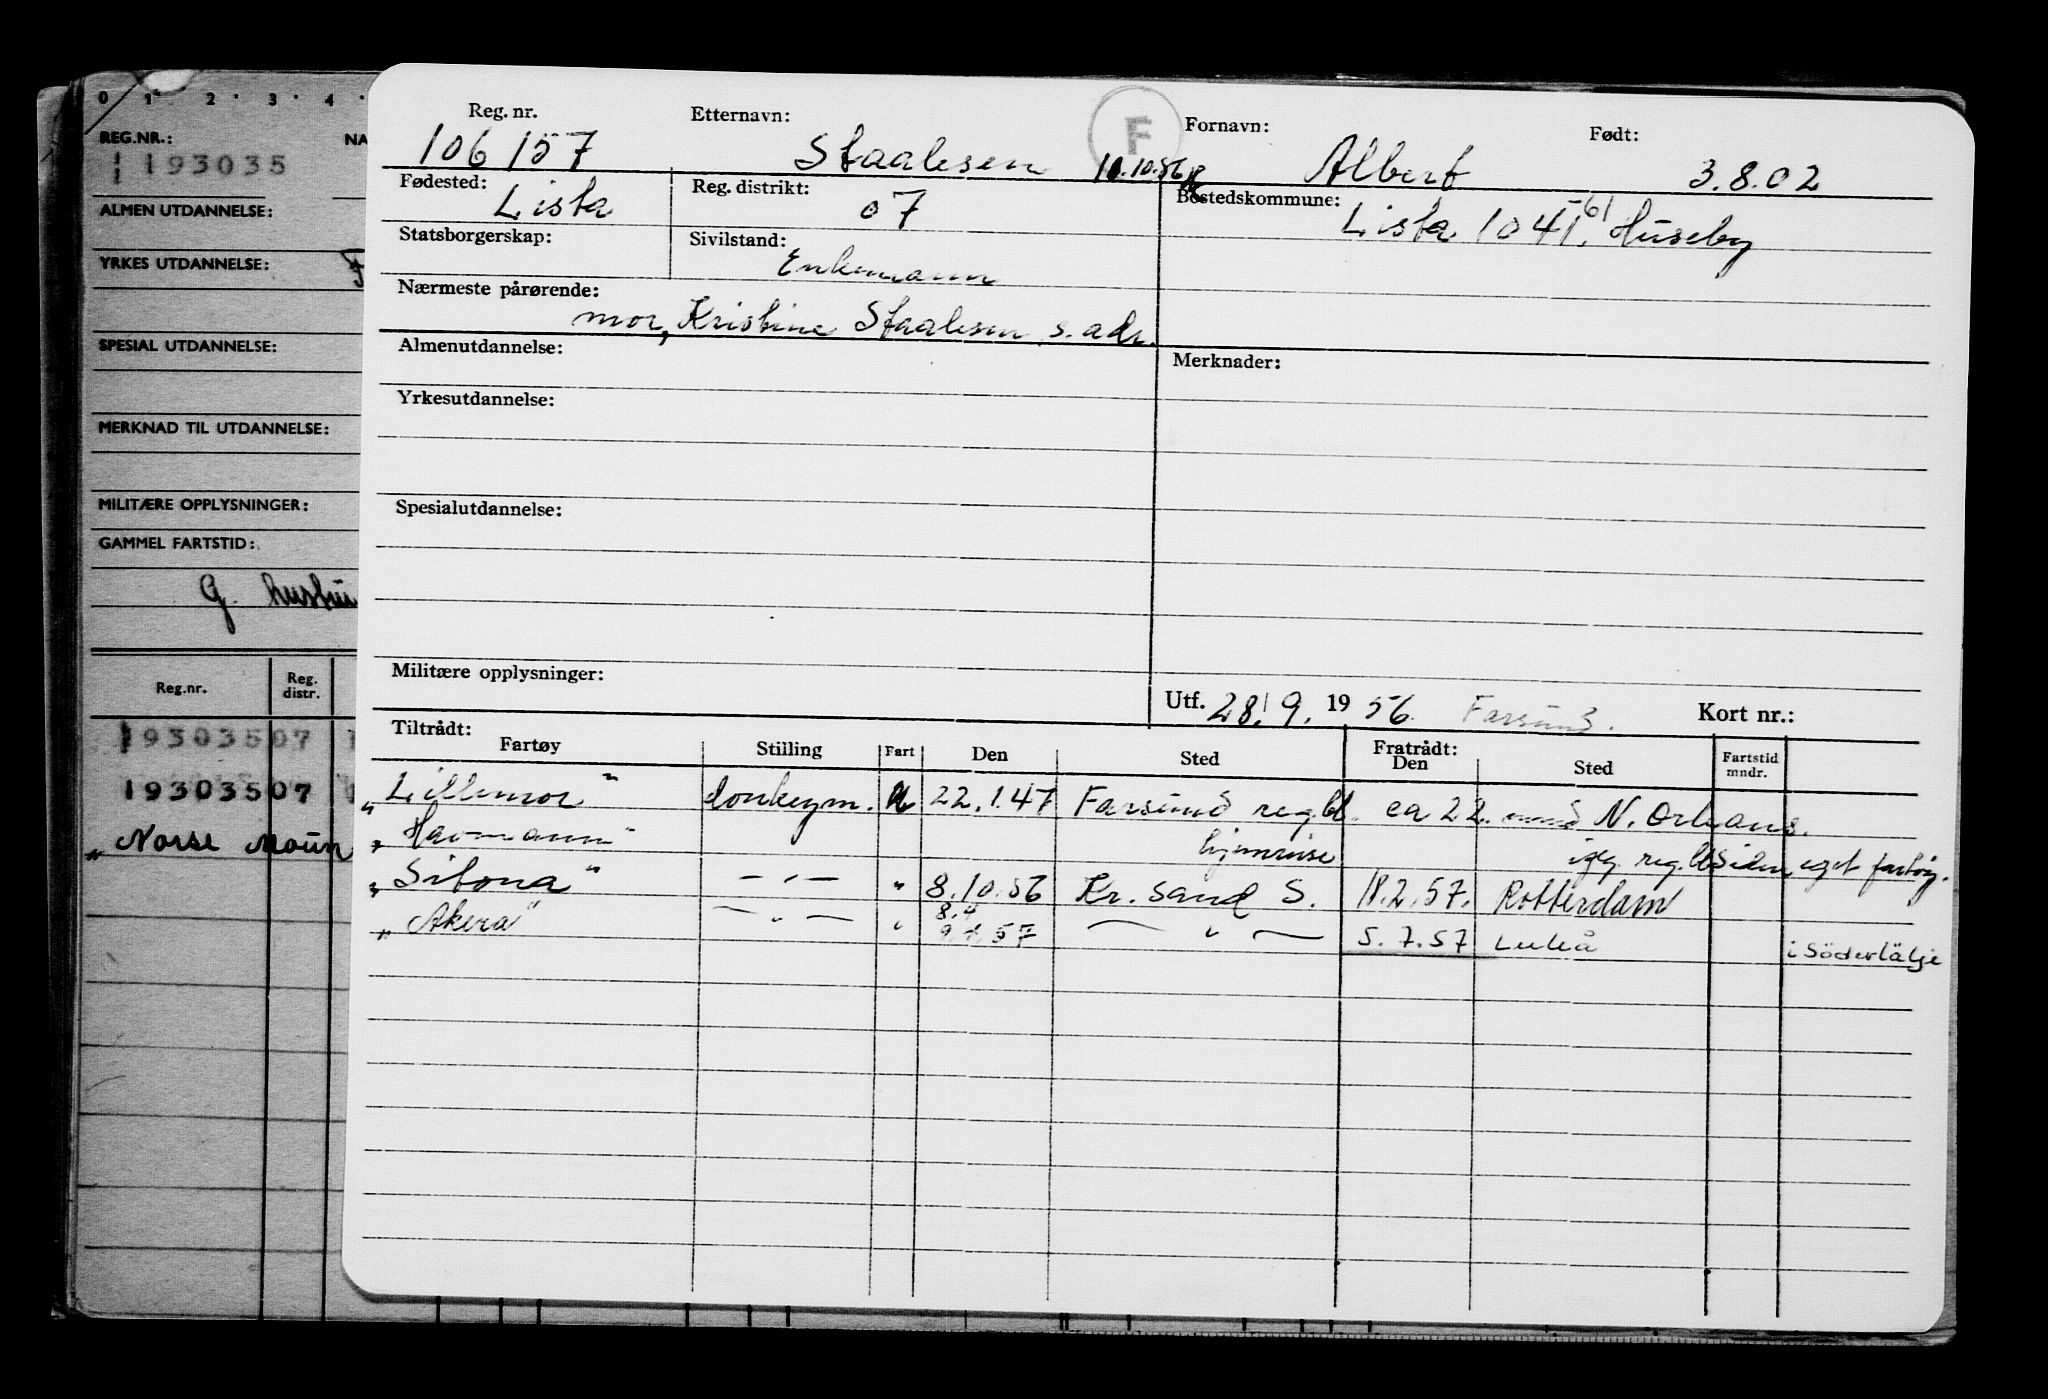 0 1 2 3 4
REG.NR.: NA
193035
ALMEN UTDANNELSE:
YRKES UTDANNELSE:
SPESIAL UTDANNELSE:
MERKNAD TIL UTDANNELSE:
MILITÆRE OPPLYSNINGER:
GAMMEL FARTSTID:
Reg.nr. Reg. distr.
193035 07
193035 07
"Norse Moun
Reg. nr. Etternavn: F Fornavn: Født:
106157 Staalesen 10.10.56 Albert 3.8.02
Fødested: Reg. distrikt: Bostedskommune:
Lista 07 Lista 1041. Huseby
Statsborgerskap: Sivilstand:
Enkemann
Nærmeste pårørende:
mor, Kristine Staalesen s. adr.
Almenutdannelse: Merknader:
Yrkesutdannelse:
Spesialutdannelse:
Militære opplysninger:
Utf. 28.9. 1956. Farsund. Kort nr.:
Tiltrådt: Fratrådt:
Fartøy Stilling Fart Den Sted Den Sted Fartstid mndr.
"Lillemor" donkeym. 22.1.47 Farsund reg.bl. ca 22. N. Orleans.
"Havmann" hjemreise reg. siden eget fartøy.
"Sitona" – " – " 8.10.56 Kr. sand S. 18.2.57. Rotterdam
"Akera" – " – " 8.4 57 – " – 5.7.57 Luleå i Södertälje